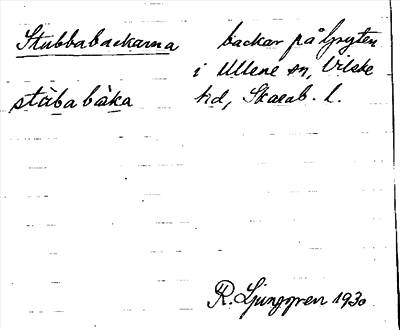 Stubbabackarna backar på Ljungten
i Ullene sn, Vilske
stùbabàka hd, Skarab. l.
R. Ljunggren 1930